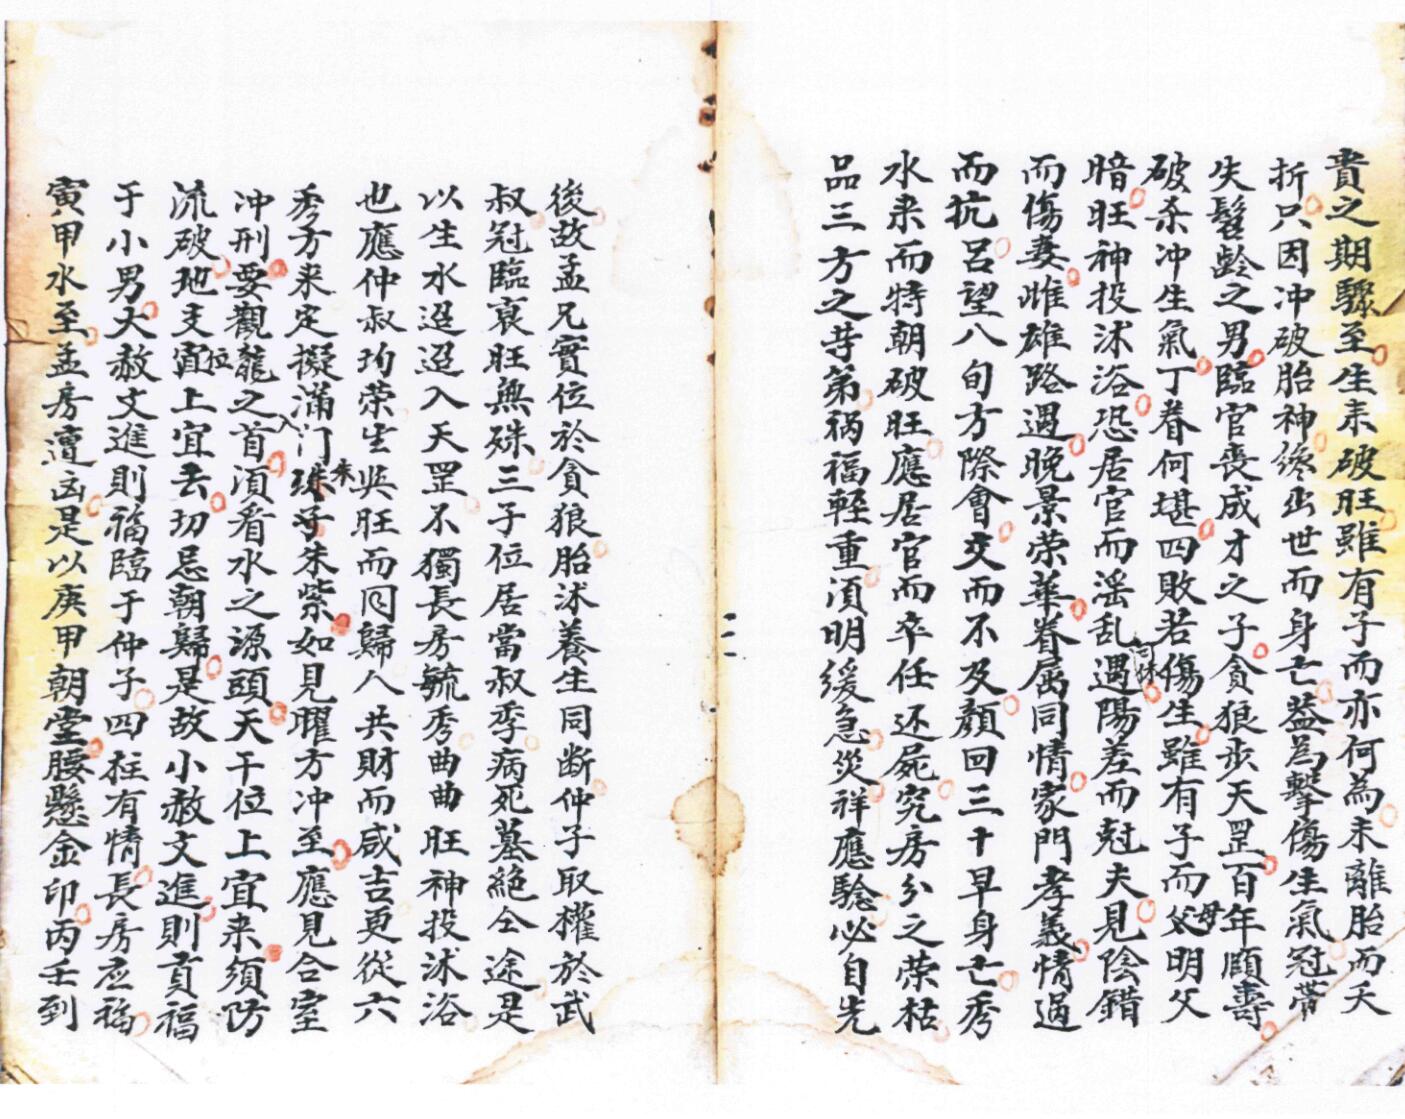 貴之期驟至生来破旺雖有子而亦何為未離胎而夭
折只因冲破胎神終出世而身亡益為擊傷生氣冠帶
失髫齡之男臨官喪成才之子貪狼步天罡百年願壽
破杀冲生氣丁眷何堪四敗若傷生雖有子而父母明父
暗旺神投沐浴恐居官而滛乱遇陽差而尅夫見陰錯
而傷妻雌雄路遇晚景荣華眷属同情家門孝義情過
而抗吕望八旬方際會交而不及顏回三十早身亡秀
水来而特朝破旺應居官而卒任还屍究房分之荣枯
品三方之等第禍福輕重湏明緩急災祥應騐必自先
後故孟兄實位於貪狼胎沐養生同断仲子取權於武
叔冠臨衰旺無殊三子位居當叔季病死墓絶仝途是
以生水迢迢入天罡不獨長房毓秀曲曲旺神投沐浴
也應仲叔均荣生與旺而同歸人共財而咸吉更從六
秀方来定擬滿门朱紫如見曜方冲至應見合室
冲刑要觀龍之入首湏看水之源頭天干位上宜来須防
流破地支位上宜去切忌朝歸是故小赦文進則貢福
于小男大赦文進則福臨于仲子四柱有情長房应福
寅甲水至孟房遭凶是以庚甲朝堂腰懸金印丙壬到